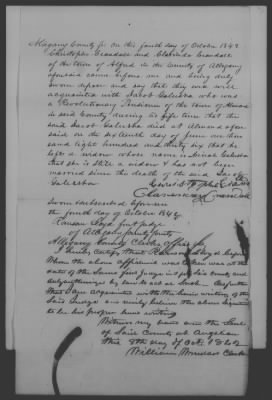 Allegany County ss on this fourth day of October 1842
Christopher Crandall and Clarinda Crandall
of the town of Alfred in the County of Allegany
aforesaid came before me and being duly
sworn depose and say that they were well
acquainted with Jacob Galusha who was
a Revolutionary Pensioner of the town of Almond
in said County during his life time that the
said Jacob Galusha died at Almond afore
said on the sixteenth day of June one thou
sand eight hundred and thirty six that he
left a widow whose name is Galusha
that she is still a widow & has not been
married since the death of the said Jacob
Galusha
Christopher Crandall
Crandall
Sworn & subscribed before me
the fourth day of October 1842
Judge
of Allegany County
Allegany County Clerks office ss
I hereby certify that
whom the above affidavit was taken was at the
date of the same first Judge in & for said County and
duly authorized by law to do as such. And further
that I am acquainted with the hand writing of the
said Judge and verily believe the above signature
to be his proper hand writing
Witness my hand and the Seal
of said County at Angelica
this 8th day of Oct. 1842
William Clerk